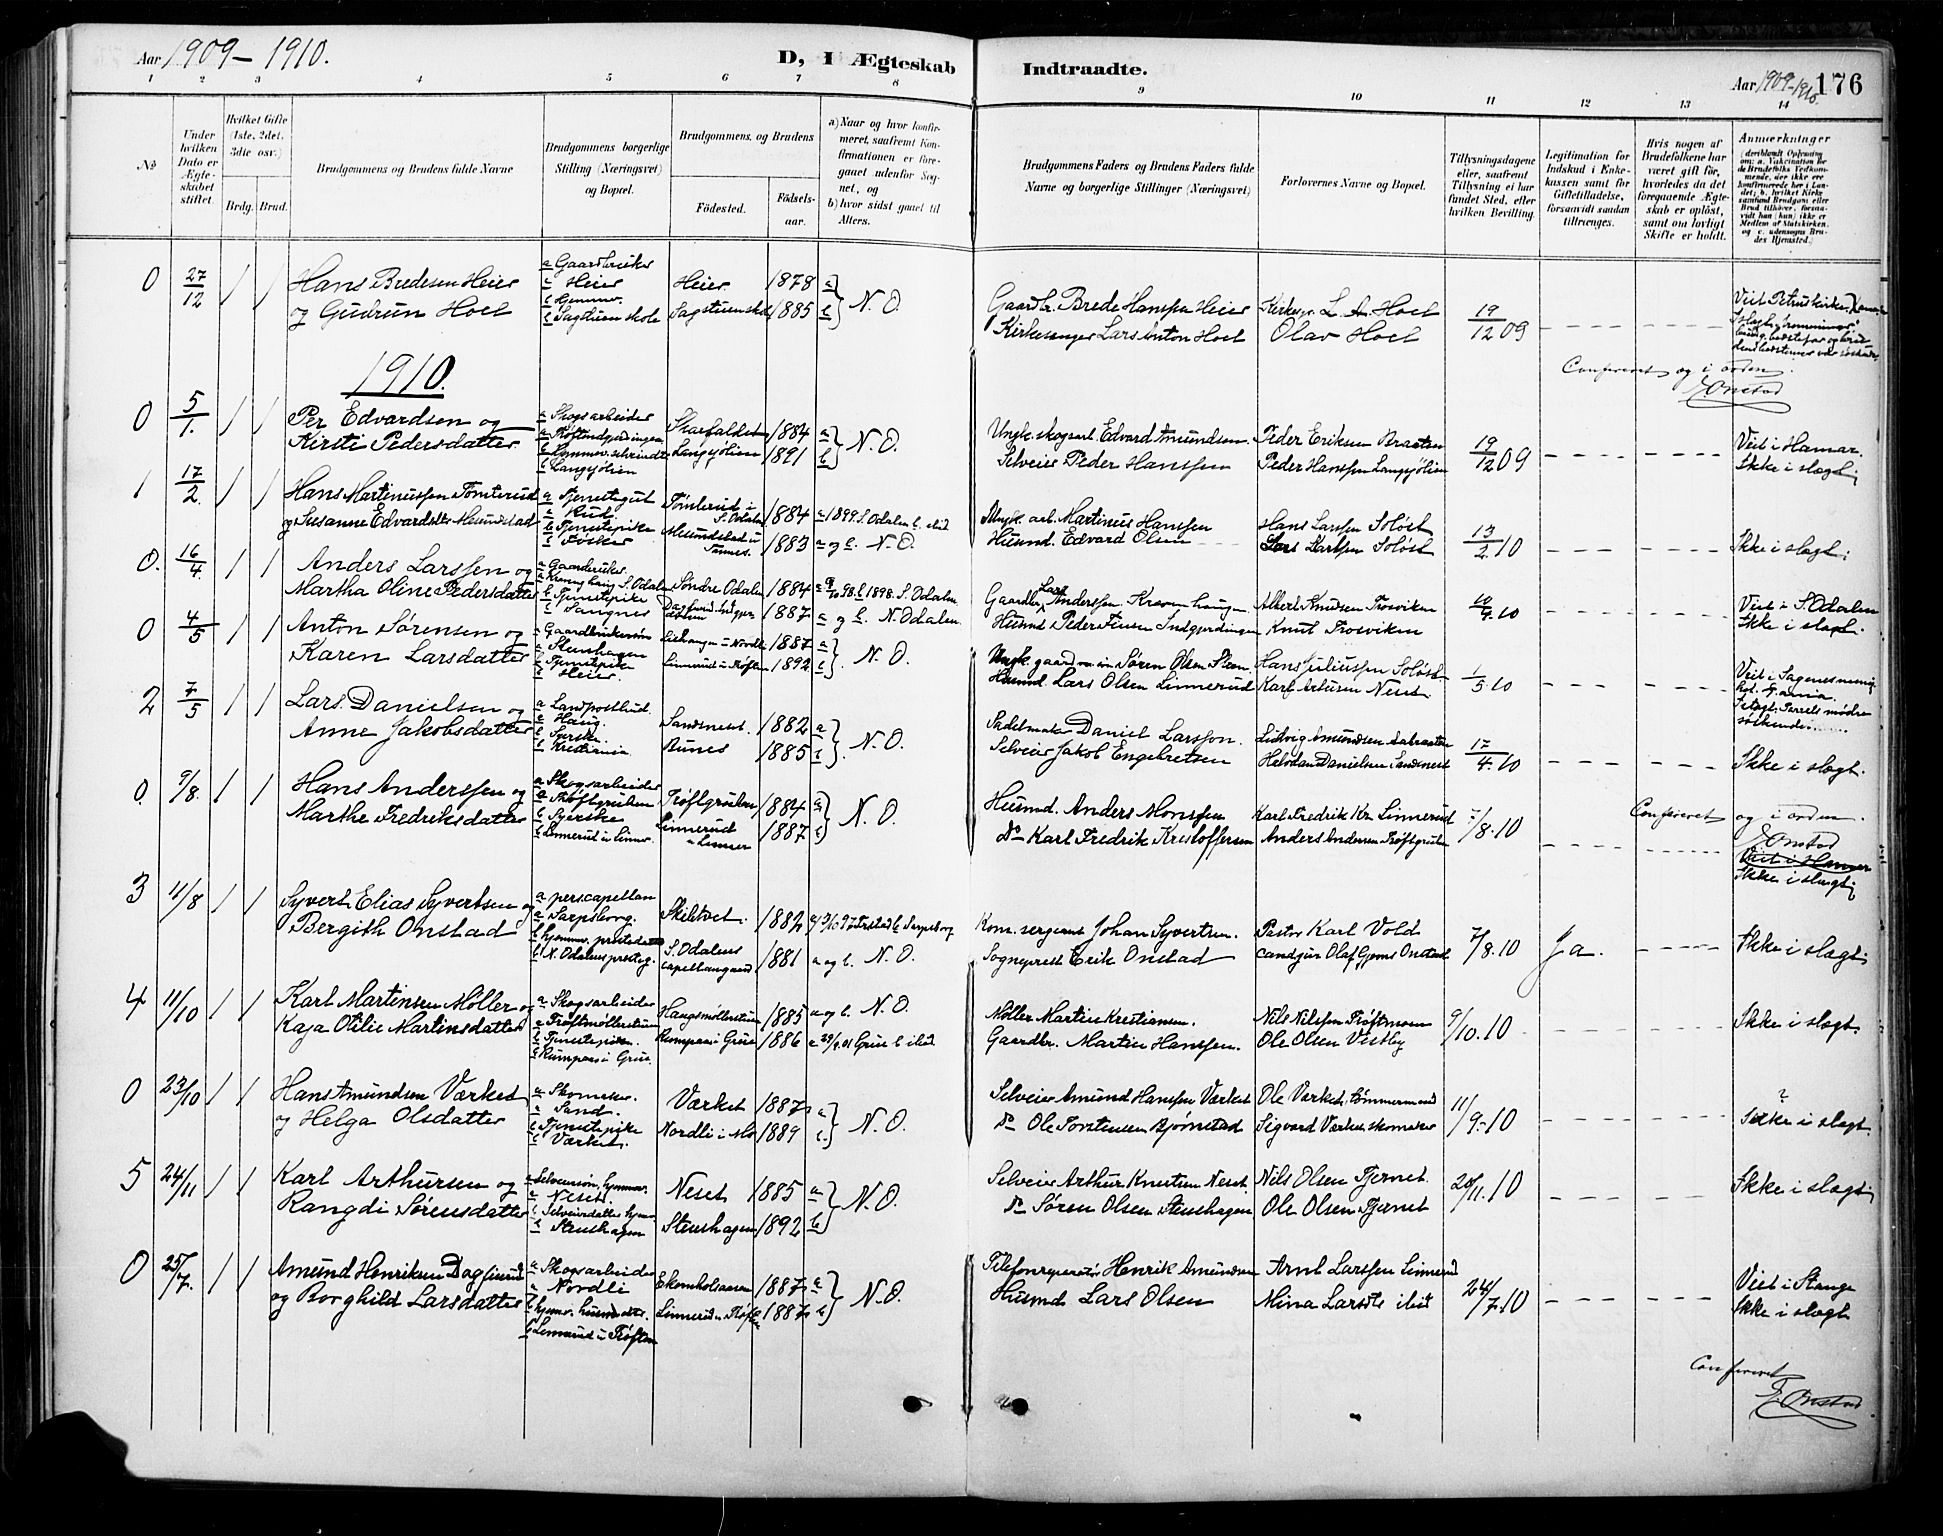 Aar 1909–1910.
D, I Ægteskab
Indtraadte.
Aar 1909–1910.
176
1 2 3 4 5 6 7 8 9 10 11 12 13 14
No
Under hvilken Dato er Ægteskabet stiftet.
Hvilket Gifte (1ste, 2det, 3die osv.)
Brdg. Brud.
Brudgommens og Brudens fulde Navne
Brudgommens borgerlige Stilling (Næringsvei) og Bopæl.
Brudgommens og Brudens
Fødested.
Fødselsaar.
a) Naar og hvor konfirmeret, saafremt Konfirmationen er foregaaet udenfor Sognet, og
b) hvor sidst gaaet til Alters.
Brudgommens Faders og Brudens Faders fulde Navne og borgerlige Stillinger (Næringsvei)
Forlovernes Navne og Bopæl.
Tillysningsdagene eller, saafremt Tillysning ei har fundet Sted, efter hvilken Bevilling.
Legitimation for Indskud i Enkekassen samt for Giftetilladelse, forsaavidt saadan tiltrænges.
Hvis nogen af Brudefolkene har været gift før, hvorledes da det foregaaende Ægteskab er opløst, samt om lovligt Skifte er holdt.
Anmærkninger
0 27/12 / / Hans Bredesen Heier og Gudrun Hoel
a Gaardbruker a Heier b hjemmev. b Sagstuen skole
Heier 1878 Sagstuen skole 1885 a b } N.O.
Gaardbr. Brede Hanssen Heier Kirkesanger Lars Anton Hoel
Kirkesgr. L. A. Hoel Olav Hoel
19/12 09
Viet Petruskirken
Conferert og i orden.
E Onstad
1910.
0 5/1. / / Per Edvardsen og Kirsti Pedersdatter
a Skogsarbeider b Langsjølien
Skarfaldet 1884 Langsjølien 1891 a b } N.O.
Ungk. skogsarb. Edvard Amundsen. Selveier Peder Hanssen
Peder Eriksen Braaten Peder Hanssen Langsjølien
19/12 09
Viet i Hamar. Ikke i slægt;
1 17/2. / / Hans Martinussen Tømterud og Susanne Edvardsdtr Mesundstad
a Tjenestegut a Rud. b Tjenestepike b Fosker
Tømterud i S. Odalen 1884 Mesundstad i 1883
a 1899 S. Odalen b. ibid a og b. N.O.
Ungk. arb. Martinus Hanssen Husmd. Edvard Olsen
Hans Larssen Soløst Lars Larssen Soløst
13/2. 10
Ikke i slægt;
0. 16/4. / / Anders Larssen og Martha Oline Pedersdatter
a Gaardbruker b Tjenestepike b Sangnes
Søndre Odalen 1884 1887
b 1898. S. Odalen a og b. N. Odalen.
Gaardbr. Lars Anderssen Husmd Peder Finsen Indgjerdingen
Albert Knudsen Trosviken Knut Trosviken
10/4. 10
Viet i S. Odalen Ikke i slægt.
0 4/5 / / Anton Sørensen og Karen Larsdatter
a Gaardbrukersøn a Stenshagen b Tjenestepike b Heier.
1887 Linnerud i Trøften 1892 a b }. N.O.
Søren Olsen Husmd. Lars Olsen Linnerud
Hans Juliussen Soløst. Karl Arthursen Neset.
1/5. 10
Viet i Sagenes menig.
2 7/5 / / Lars Danielsen og Anne Jakobsdatter
a Landpostbud. a Haug. b Syerske b Kristiania
Sandneset. 1882 Bunes 1885 a b } N.O.
Sadelmaker Daniel Larsson. Selveier Jakob Engebretsen
Ludvig Amundsen Halvdan Danielsen Sandneset
17/4. 10
Ikke i slægt.
0. 9/8. / / Hans Anderssen og Marthe Fredriksdatter
a Skogsarbeider a Trøftgruben b Syerske b Linnerud i Linner.
Trøftgruben 1884 Linnerud i Linner 1887 a b } N.O.
Husmd. Anders Monssen Do Karl Fredrik Kristoffersen
Karl Fredrik Kr. Linnerud Anders Andersen Trøftgruben
7/8. 10
Conferert og i orden.
E Onstad
Viet i Hamar
Ikke i slægt;
3 11/8 / / Syvert Elias Syvertsen og Bergith Onstad
a perscapellan a Sarpsborg. b hjemmev. prestedatter b N. Odalens presteg.
Skibtvet. 1882 S. Odalens capellangaard 1881
b Sarpsborg a og b. N.O.
Kom. sergeant Johan Syvertsen. Sogneprest Erik Onstad
Pastor Karl Vold cand jur Olaf Gjems Onstad
7/8. 10
Ja.
Ikke i slægt;
4 11/10 / / Karl Martinsen Møller og Kaja Otilie Martinsdatter
a Skogsarbeider a Trøftmøllerstuen b Tjenestepike. b Rumpaas i Grue
Haugsmøllerstuen 1885 Rumpaas i Grue 1886
a og b. N.O. Grue b ibid
Møller Martin Kristiansen. Gaardbr. Martin Hanssen.
Nils Nilssen Trøftmoen Ole Olsen Vestby
9/10. 10
Ikke i slægt.
0 23/10 / / Hans Amundsen Værket og Helga Olsdatter
a Skomaker. a Sand. b Tjenestepike b Værket.
Værket 1887 Nordli i Mo 1889 a b } N.O.
Selveier Amund Hanssen Værket Do Ole Torstensen Bjørnstad
Ole Værket, tømmermand Sigvard Værket, skomaker
11/9. 10
? Ikke i slægt.
5 24/11 / / Karl Arthursen og Rangdi Sørensdatter
a Selveiersøn, hjemmev. a Neset. b Selveierdatter, hjemv. b Stenshagen
Neset 1885 Stenshagen 1892 a b } N.O.
Selveier Arthur Knutsen Neset. Do Søren Olsen Stenshagen
Nils Olsen Tjernet. Ole Olsen Tjernet
20/11. 10
Ikke i slægt;
0 25/7. / / Amund Henriksen Dagfinrud og Borghild Larsdatter
a Skogsarbeider a Nordli b hjemv. husmdsdtr. b Linnerud i Trøften
1887 Linnerud i Trøften 1887 a b } N.O.
Telefonreparatør Henrik Amundsen Husmd Lars Olsen
Arnt Larssen Linnerud Mina Larsdtr ibid
24/7. 10
Viet i Stange Ikke i slægt
Conferert
E. Onstad